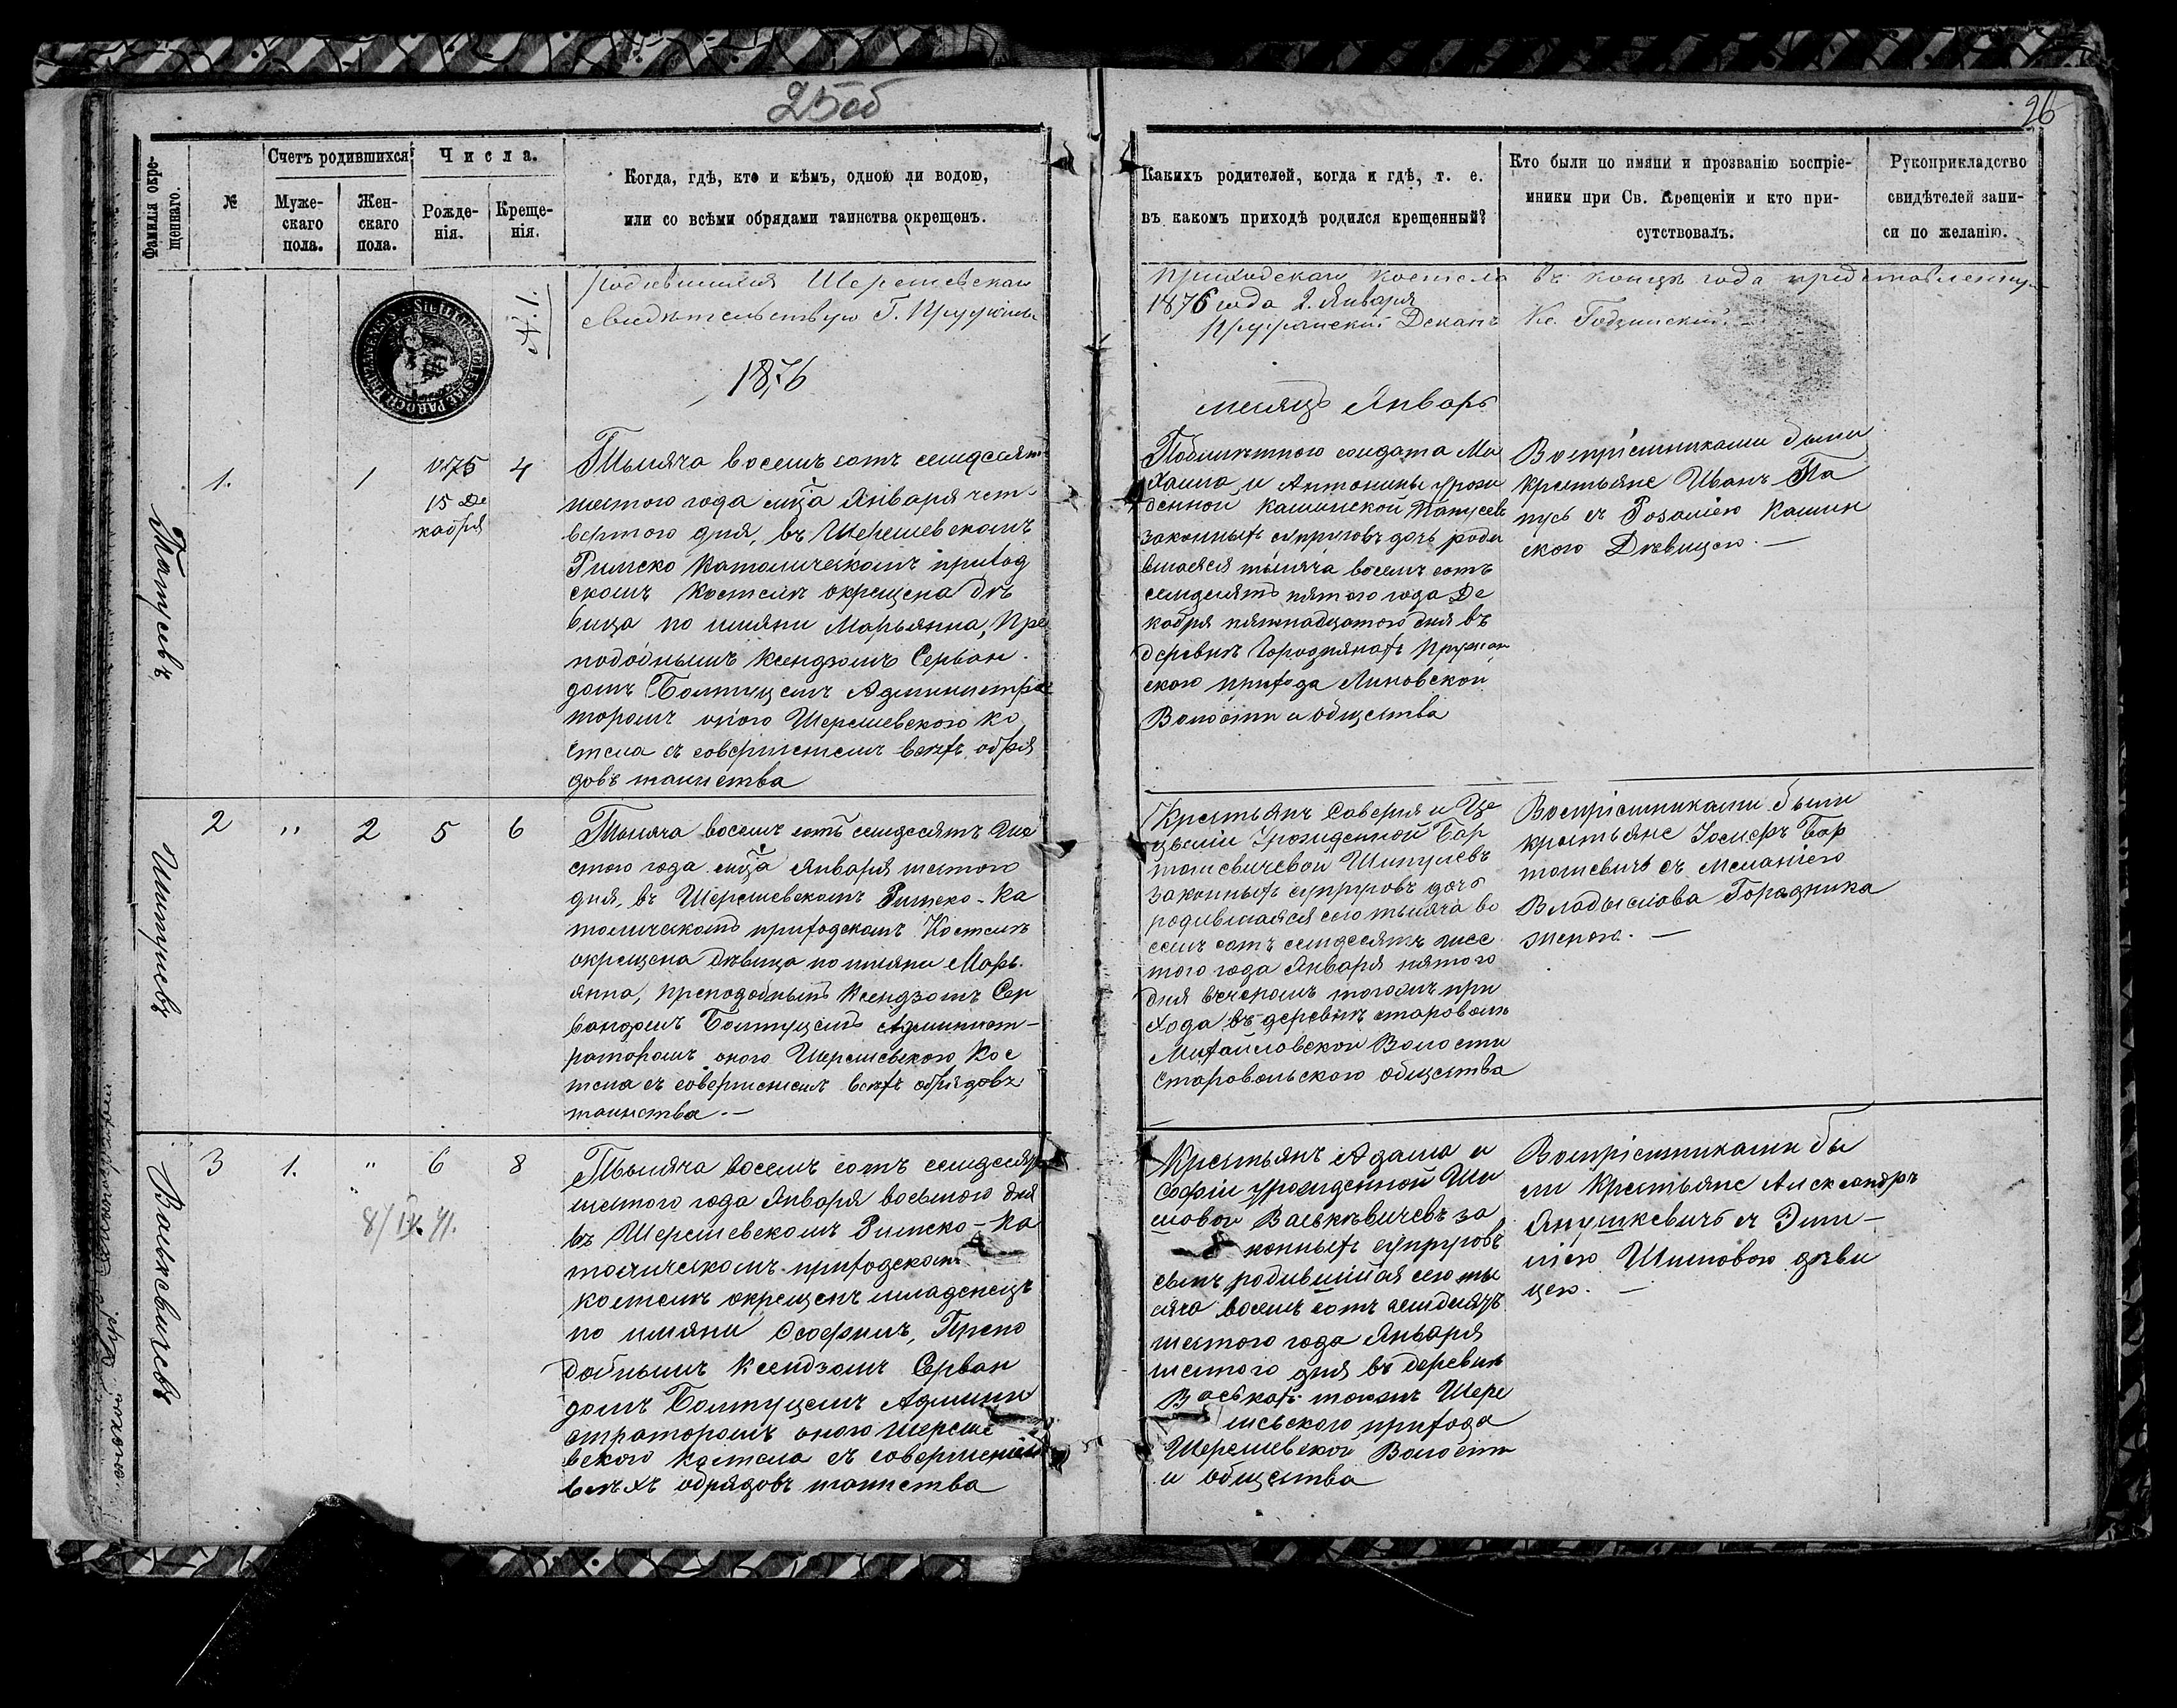 25об
26
Фамилія окре-
щеннаго.
№
Счетъ родившихся
Муже-
скаго
пола.
Жен-
скаго
пола.
Числа.
Рожде-
нія.
Креще-
нія.
Когда, гдѣ, кто и кѣмъ, одною ли водою,
или со всѣми обрядами таинства окрещенъ.
Какихъ родителей, когда и гдѣ, т. е.
въ какомъ приходѣ родился крещенный?
Кто были по имяни и прозванію воспріе-
мники при Св. Крещеніи и кто при-
сутствовалъ.
Рукоприкладство
свидѣтелей запи-
си по желанію.
Шерешевскаго
свидѣтельствую Г. Пружаны
приходскаго костела въ концѣ года
1876 года 2. Января
Пружанскій Деканъ Кс.
1876
месяцъ Январь
Татусевъ
1.
1
1875
15 Де
кабря
4
Тысяча восемь сотъ семдесятъ
шестого года мца Января чет-
вертого дня, въ Шерешевскомъ
Римско Католическомъ приход
скомъ Костелѣ окрещена дѣ
вица по имяни Марьянна, Пре
подобнымъ Ксендзомъ Серван
домъ Болтуцемъ Администра
торомъ оного Шерешевского Ко
стела съ совершенiемъ всѣхъ обря
довъ таинства
солдата Ми
хаила и Антонины урожд
денной Каминской Татусевъ
законныхъ супруговъ дочь роди
вшаяся тысяча восемь сотъ
семдесятъ пятого года Де
кабря пятнадцатого дня въ
деревнѣ Городнянахъ Пружан
ского прихода Линовской
Волости и общества
Воспріемниками были
крестьяне Иванъ Та
тусь съ Розаліею Камин
скою Дѣвицею. —
Шипулевъ
2
"
2
5
6
Тысяча восемь сотъ семдесятъ ше
стого года мца Января шестого
дня, въ Шерешевскомъ Римско-Ка
толическомъ приходскомъ Костелѣ
окрещена дѣвица по имяни Марь-
янна, преподобнымъ Ксендзомъ Сер
вандомъ Болтуцемъ Админист-
раторомъ оного Шерешевского Кос
тела съ совершенiемъ всѣхъ обрядовъ
таинства. —
Крестьянъ Саверия и Це
циліи Урожденной Бар
тошевичевой Шипулевъ
законныхъ супруговъ дочь
родившаяся сего тысяча во
семь сотъ семдесятъ шес
того года Января пятого
дня вечеромъ тогожъ при
хода въ деревнѣ староволѣ
Михайловской Волости
Старовольского общества
Воспріемниками были
крестьяне Іосифъ Бар
тошевичъ съ Меланіею
Владыслава Городника
женою. —
Васькевичевъ
3
1.
"
6
8
8/IX 41.
Тысяча восемь сотъ семдесятъ
шестого года Января восьмого дня
въ Шерешевскомъ Римско-Ка
толическомъ приходскомъ
костелѣ окрещенъ младенецъ
по имяни Ѳеофилъ, Препо
добнымъ Ксендзомъ Серван
домъ Болтуцемъ Админи
страторомъ оного Шереше
вского Костела съ совершенiемъ
всѣхъ обрядовъ таинства
Крестьянъ Адама и
Софіи урожденной Ши
Васькѣвичевъ за
конныхъ супруговъ
сынъ родившійся сего ты
сяча восемь сотъ семдесятъ
шестого года Января
шестого дня въ деревнѣ
Васькахъ тогожъ Шере
шевского прихода
Шерешевской Волости
и общества
Воспріемниками бы
ли Крестьяне Александръ
Янушкевичъ съ Эми-
ліею Шиловою дѣви
цею. —